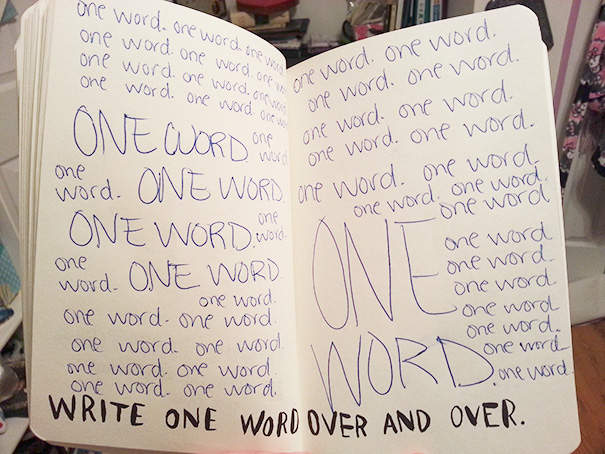 one word. one word. one word
one word. one word. one w
one word. one word. one word
one word. one word. one wo
ONE WORD. one
word
one
word. ONE WORD
ONE WORD. one
word.
one
word. ONE WORD
one word.
one word. one word.
one word. one word
one word. one word
one word. one word.
one word. one word.
one word. one word.
one word. one word.
one word. one word.
one word. one word.
one word. one word
one word
ONE
WORD.
one word
one word.
one word
one word
one word.
one word
one word.
WRITE ONE WORD OVER AND OVER.